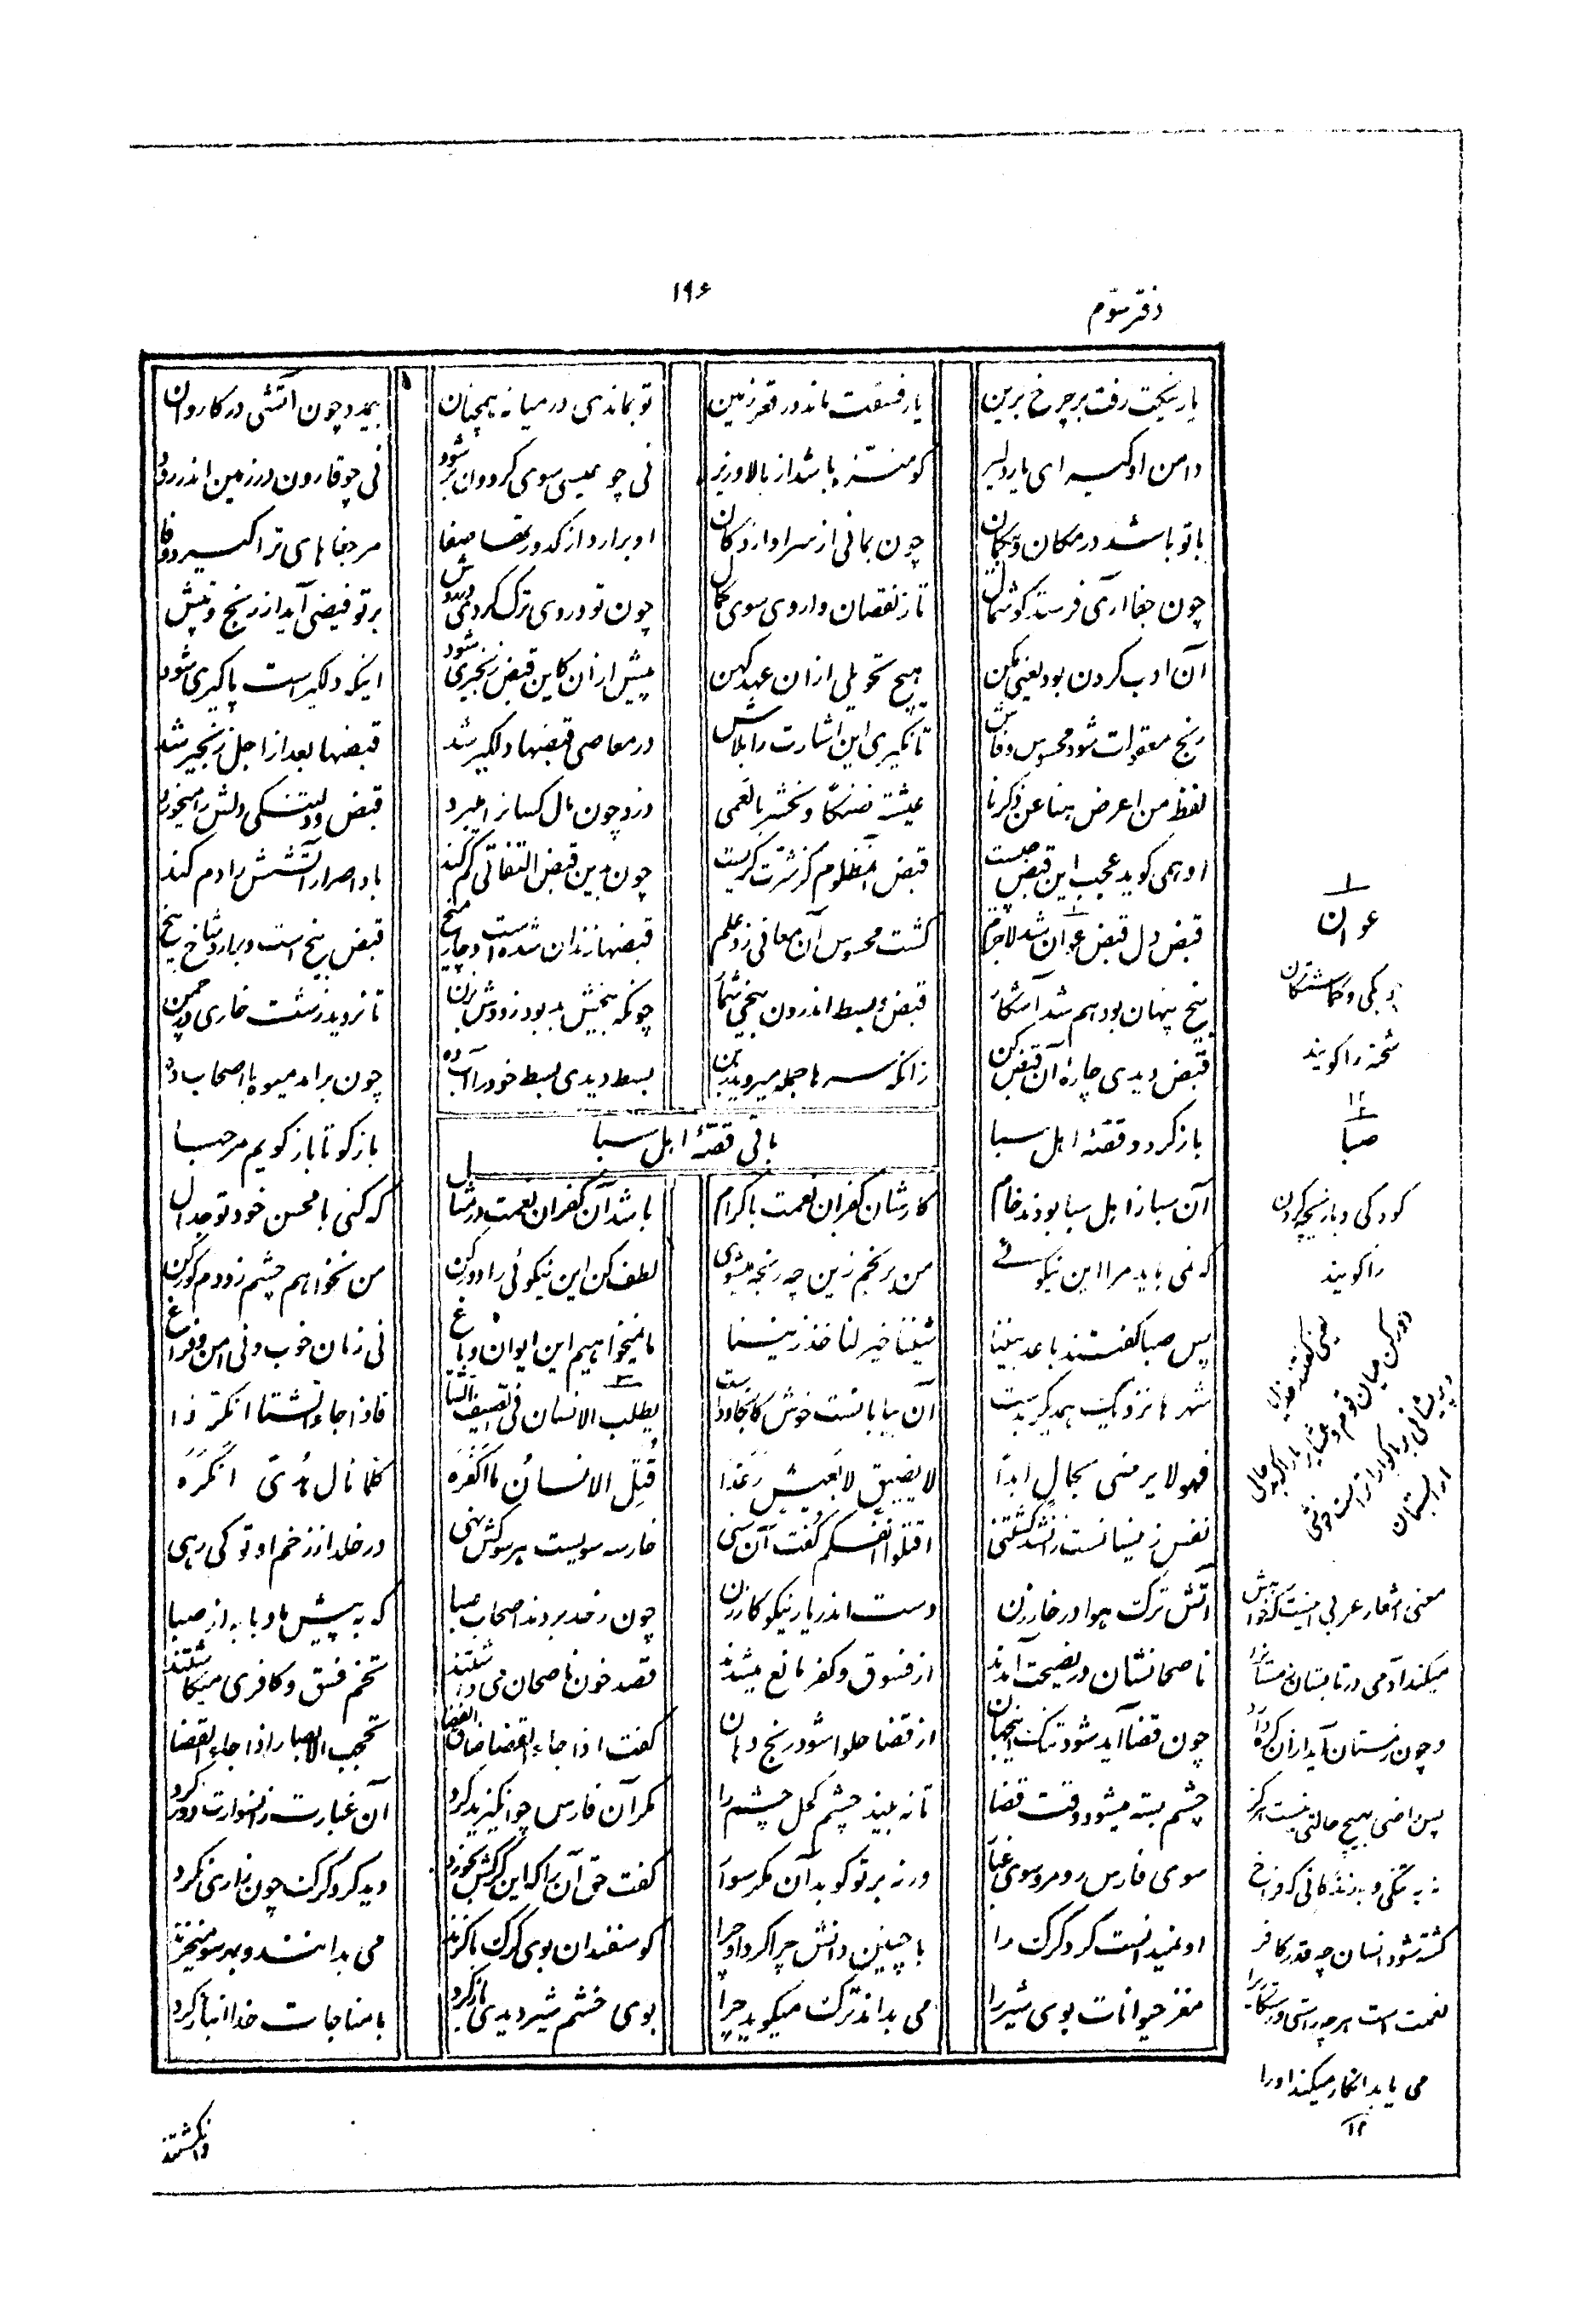 دفتر سوم
۱۹۶
یار نیکت رفت بر چرخ برین یار فسقت ماند در قعر زمین تو بماندی در میانه همچنان بیمدد چون آتشی در کاروان
دامن او گیر ای یار دلیر کو منزه باشد از بالا و زیر نی چو عیسی سوی گردون بر شود نی چو قارون در زمین اندر رود
با تو باشد در مکان و لامکان چون بمانی از سرا و از دکان او برارد از کدورتها صفا مر جفاهای ترا گیرد وفا
چون جفا آری فرستد گوشمال تا ز نقصان وا روی سوی کمال چون تو وردی ترک کردی در روش بر تو قبضی آید از رنج و تپش
آن ادب کردن بود یعنی مکن هیچ تحویلی از ان عهد کهن پیش از ان کاین قبض زنجیری شود اینکه دلگیر است پاگیری شود
رنج معقولت شود محسوس و فاش تا نگیری این اشارت را بلاش در معاصی قبضها دلگیر شد قبضها بعد از اجل زنجیر شد
لفظ من اعرض هنا عن ذکرنا عیشة ضنکا و نحشر بالعمی دزد چون مال کسانرا میبرد قبض و دلتنگی دلش را میخورد
او همی گوید عجب این قبض چیست قبض آن مظلوم کز شرت گریست چون بدین قبض التفاتی کم کند باد اصرار آتشش را دم کند
قبض دل قبض عوان شد لاجرم گشت محسوس آن معانی زد علم قبضها زندان شده است و چارمیخ قبض بیخ است و برارد شاخ بیخ
بیخ پنهان بود هم شد آشکار قبض و بسط اندرون بیخی شمار چونکه بیخش بد بود زودش بزن تا نروید زشت خاری در چمن
قبض دیدی چاره آن قبض کن زانکه سرها جمله میروید ز بن بسط دیدی بسط خود را آب ده چون براید میوه با اصحاب ده
باز گرد و قصهٔ اهل سبا باز گو تا باز گویم مرحبا
باقی قصهٔ اهل سبا
آن سبا ز اهل سبا بودند خام کارشان کفران نعمت با کرام باشد آن کفران نعمت در مثال که کنی با محسن خود تو جدال
که نمی باید مرا این نیکوئے من برنجم زین چه رنجه میشوی لطف کن این نیکوئی را دور کن من نخواهم چشم زودم کور کن
پس سبا گفتند باعد بیننا شیننا خیر لنا خذ زیننا ما نمیخواهیم این ایوان و باغ نی زنان خوب و نی امن و فراغ
شهرها نزدیک همدیگر بدست آن بیابانست خوش کانجا ددست یطلب الانسان فی الصیف الشتا فاذا جاء الشتا انکر ذا
فهو لا یرضی بحال ابدا لا بضیق لا بعیش رغدا قُتِلَ الانسانُ ما اکفره کلما نال هُدیً انکره
نفس زینسانست زان شد کشتنی اقتلوا انفسکم گفت آن سنی خار سه سویست هر سو کش نهی در خلد از زخم او تو کی رهی
آتش ترک هوا در خار زن دست اندر یار نیکوکار زن چون ز حد بردند اصحاب صبا که به پیش ما وبا به از صبا
ناصحانشان در نصیحت آمدند از فسوق و کفر مانع میشدند قصد خون ناصحان می داشتند تخم فسق و کافری میکاشتند
چون قضا آید شود تنگ اینجهان از قضا حلوا شود رنج دهان گفت اذا جاء القضا ضاق الفضا تحجب الابصار اذا جاء القضا
چشم بسته میشود وقت قضا تا نه بیند چشم کحل چشم را مکر آن فارس چو انگیزید گرد آن غبارت ز استغاثت دور کرد
سوی فارس رو مرو سوی غبار ورنه بر تو کوبد آن مکر سوار گفت حق آنرا که این گرگش بخورد دید گرد گرگ چون زاری نکرد
او نمیدانست گرد گرگ را با چنین دانش چرا کرد او چرا گوسفندان بوی گرگ با گزند می بدانند و بهر سو میخزند
مغز حیوانات بوی شیر را می بداند ترک میگوید چرا بوی خشم شیر دیدی باز گرد با مناجات خدا انباز گرد
۱
عوان
شحنه را گویند
۱۲
۲
صبا
کودکی و بازیچه کردن
را گویند
معنی اشعار عربی اینست که خواهش
میکند آدمی در تابستان زمستانرا
و چون زمستان آید ازان کره دارد
پس راضی بهیچ حالتی نیست هرگز
نه به تنگی و نه زندگانی فراخ
کشته شود انسان چه قدر کافر
نعمت است هر چه راستی و رستگاری
می یابد انکار میکند اورا
۱۲